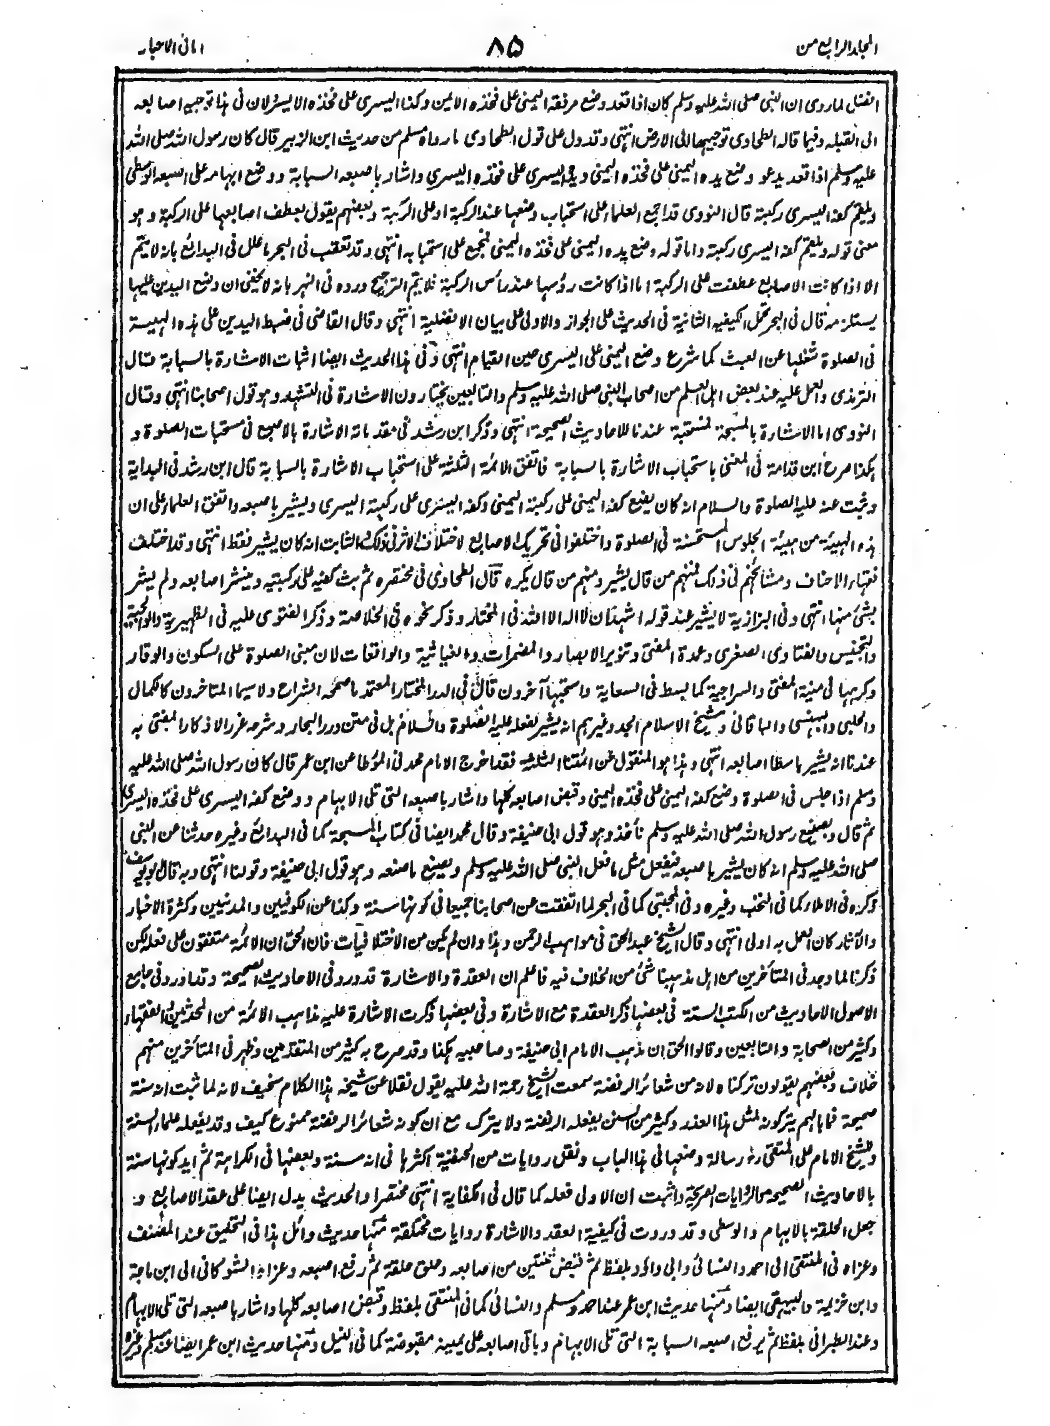 المجلد الرابع من
۸۵
امانی الاحبار
افضل لما روی ان النبی صلی اللہ علیہ وسلم کان اذا قعد وضع مرفقہ الیمنی علی فخذہ الایمن وکذا الیسری علی فخذہ الایسر ولان فی ہذا توجیہ اصابعہ
الی القبلہ وفیما قالہ الطحاوی توجیہہا الی الارض انتہی وقد دل علی قول الطحاوی ما رواہ مسلم من حدیث ابن الزبیر قال کان رسول اللہ صلی اللہ
علیہ وسلم اذا قعد یدعو وضع یدہ الیمنی علی فخذہ الیمنی ویدہ الیسری علی فخذہ الیسری واشار باصبعہ السبابۃ ووضع ابہامہ علی اصبعہ الوسطی
ویلقم کفہ الیسری رکبتہ قال النووی قد اجمع العلماء علی استحباب وضعہا عند الرکبۃ او علی الرکبۃ وبعضہم یقول بعطف اصابعہا علی الرکبۃ وہو
معنی قولہ ویلقم کفہ الیسری رکبتہ واما قولہ وضع یدہ الیمنی علی فخذہ الیمنی فمجمع علی استحبابہ انتہی وقد تعقب فی البحر ما علل فی البدائع بانہ لا یتم
الا اذا کانت الاصابع عطفت علی الرکبۃ اما اذا کانت رؤسہا عند رأس الرکبۃ فلا یتم الترجیح وردہ فی النہر بانہ لا یخفی ان وضع الیدین علیہا
یستلزمہ قال فی البحر تحمل الکیفیہ الثانیۃ فی الحدیث علی الجواز والاولی علی بیان الافضلیۃ انتہی وقال القاضی فی ضبط الیدین علی ہذہ الہیئۃ
فی الصلوۃ شغلہا عن العبث کما شرع وضع الیمنی علی الیسری حین القیام انتہی وفی ہذا الحدیث ایضا اثبات الاشارۃ بالسبابۃ قال
الترمذی والعمل علیہ عند بعض اہل العلم من اصحاب النبی صلی اللہ علیہ وسلم والتابعین یختارون الاشارۃ فی التشہد وہو قول اصحابنا انتہی وقال
النووی اما الاشارۃ بالمسبحۃ فمستحبۃ عندنا للاحادیث الصحیحۃ انتہی وذکر ابن رشد فی مقدماتہ الاشارۃ بالاصبع فی مستحبات الصلوۃ و
ہکذا صرح ابن قدامۃ فی المغنی باستحباب الاشارۃ بالسبابۃ فاتفق الائمۃ الثلثۃ علی استحباب الاشارۃ بالسبابۃ قال ابن رشد فی البدایۃ
وثبت عنہ علیہ الصلوۃ والسلام انہ کان یضع کفہ الیمنی علی رکبتہ الیمنی وکفہ الیسری علی رکبتہ الیسری ویشیر باصبعہ واتفق العلماء علی ان
ہذہ الہیئۃ من ہیئۃ الجلوس المستحسنۃ فی الصلوۃ واختلفوا فی تحریک الاصابع لاختلاف الاثر فی ذلک والثابت انہ کان یشیر فقط انتہی وقد اختلف
فقہاء الاحناف ومشائخہم فی ذلک فمنہم من قال یشیر ومنہم من قال یکرہ قال الطحاوی فی مختصرہ ثم بث کفیہ علی رکبتیہ وینشر اصابعہ ولم یشر
بشئ منہا انتہی وفی البزازیۃ لا یشیر عند قولہ اشہد ان لا الہ الا اللہ فی المختار وذکر نحوہ فی الخلاصۃ وذکر الفتوی علیہ فی الظہیریۃ والولوالجیۃ
والتجنیس والفتاوی الصغری وعمدۃ المفتی وتنویر الابصار والمضمرات والغیاثیۃ والواقعات لان مبنی الصلوۃ علی السکون والوقار
وکرہہا فی منیۃ المفتی والسراجیۃ کما بسط فی السعایۃ واستحبہا آخرون قال فی الدر المختار المعتمد ما صححہ الشراح ولا سیما المتاخرون کالکمال
والحلبی والبہنسی والباقانی وشیخ الاسلام الجد وغیرہم انہ یشیر لفعلہ علیہ الصلوۃ والسلام بل فی متن درر البحار وشرحہ غرر الاذکار المفتی بہ
عندنا انہ یشیر باسطا اصابعہ انتہی وہذا ہو المنقول عن ائمتنا الثلثۃ فقد اخرج الامام محمد فی المؤطا عن ابن عمر قال کان رسول اللہ صلی اللہ علیہ
وسلم اذا جلس فی الصلوۃ وضع کفہ الیمنی علی فخذہ الیمنی وقبض اصابعہ کلہا واشار باصبعہ التی تلی الابہام ووضع کفہ الیسری علی فخذہ الیسری
ثم قال وبصنیع رسول اللہ صلی اللہ علیہ وسلم نأخذ وہو قول ابی حنیفۃ وقال محمد ایضا فی کتاب المسبحۃ کما فی البدائع وغیرہ حدثنا عن النبی
صلی اللہ علیہ وسلم انہ کان یشیر باصبعہ فیفعل مثل ما فعل النبی صلی اللہ علیہ وسلم ویصنع ما صنعہ وہو قول ابی حنیفۃ وقولنا انتہی وبہ قال ابو یوسف
ذکرہ فی الاملاء کما فی النخب وغیرہ وفی المجتبی کما فی البحر لما اتفقت عن اصحابنا جمیعا فی کونہا سنۃ وکذا عن الکوفیین والمدنیین وکثرۃ الاخبار
والآثار کان العمل بہ اولی انتہی وقال الشیخ عبد الحق فی مواہب الرحمن وہذا وان لم یکن من الاختلافیات فان الحق ان الائمۃ متفقون علی فعلہ لکن
ذکرنا لما وجد فی المتأخرین من اہل مذہبنا شئ من الخلاف فیہ فاعلم ان العقدۃ والاشارۃ قد ورد فی الاحادیث الصحیحۃ وقد اورد فی جامع
الاصول الاحادیث من الکتب الستۃ فی بعضہا ذکر العقدۃ مع الاشارۃ وفی بعضہا ذکرت الاشارۃ علیہ مذاہب الائمۃ من المحدثین والفقہاء
وکثیر من الصحابۃ والتابعین وقالوا الحق ان مذہب الامام ابی حنیفۃ وصاحبیہ ہکذا وقد صرح بہ کثیر من المتقدمین وظہر فی المتأخرین منہم
خلاف وبعضہم یقولون ترکناہ لانہ من شعائر الرفضۃ سمعت الشیخ رحمۃ اللہ علیہ یقول نقلا عن شیخہ ہذا الکلام سخیف لانہ لما ثبت انہ سنۃ
صحیحۃ فما بالہم یترکونہ لمثل ہذا العذر وکثیر من السنن یفعلہ الرفضۃ ولا یترک مع ان کونہ شعائر الرفضۃ ممنوع کیف وقد یفعلہ علماء السنۃ
وللشیخ الامام علی المتقی رہ رسالۃ وضعہا فی ہذا الباب ونقل روایات من الحنفیۃ اکثرہا فی انہ سنۃ وبعضہا فی الکراہۃ ثم اید کونہا سنۃ
بالاحادیث الصحیحۃ والروایات الصریحۃ واثبت ان الاولی فعلہ کما قال فی الکفایۃ انتہی مختصرا والحدیث یدل ایضا علی عقد الاصابع و
جعل الحلقۃ بالابہام والوسطی وقد وردت فی کیفیۃ العقد والاشارۃ روایات مختلفۃ منہا حدیث وائل ہذا فی التحلیق عند المصنف
وعزاہ فی المنتقی الی احمد والنسائی وابی داؤد بلفظ ثم قبض ثنتین من اصابعہ وحلق حلقۃ ثم رفع اصبعہ وعزاہ الشوکانی الی ابن ماجۃ
وابن خزیمۃ والبیہقی ایضا ومنہا حدیث ابن عمر عند احمد ومسلم والنسائی کما فی المنتقی بلفظ وقبض اصابعہ کلہا واشار باصبعہ التی تلی الابہام
وعند الطبرانی بلفظ ثم یرفع اصبعہ السبابۃ التی تلی الابہام وباقی اصابعہ علی یمینہ مقبوضۃ کما فی النیل ومنہا حدیث ابن عمر ایضا عند مسلم وغیرہ